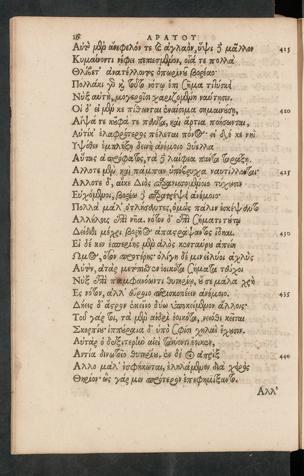 16 ΑΡΑΤΟΥ
Αὐτὴ μὲν ἀνέφελός τε καὶ ἀγλαὴ, ὕψι δὲ μᾶλλον 415
Κυμαίνοντι νέφει πεπιεσμένον, οἷά τε πολλὰ
Θλίβετ' ἀνατέλλοντος ὀπωρινοῦ βορέαο.
Πολλάκι γὰρ καὶ τοῦτο νότῳ ἔπι σῆμα τιτύσκει
Νὺξ αὐτὴ, μογεροῖσι χαριζομένη ναύτησιν.
Οἱ δ' εἰ μέν κε πίθωνται ἐναίσιμα σημαινούσῃ, 420
Αἶψά τε κοῦφά τε πάντα, καὶ ἄρτια ποιήσονται,
Αὐτίκ' ἐλαφρότερος πέλεται πόνος· εἰ δέ κε νηῒ
Ὑψόθεν ἐμπλήξῃ δεινὴ ἀνέμοιο θύελλα
Αὔτως ἀπρόφατος, τὰ δὲ λαίφεα πάντα ταράξῃ,
Ἄλλοτε μὲν καὶ πάμπαν ὑπόβρυχα ναυτίλλονται· 425
Ἄλλοτε δ', αἴκε Διὸς παρανισσομένοιο τύχωσιν
Εὐχόμενοι, βορέω δὲ παραστρέψῃ ἀνέμοιο,
Πολλὰ μάλ' ὀτλήσαντες, ὅμως πάλιν ἐσκέψαντο
Ἀλλήλους ἐπὶ νηΐ. νότον δ' ἐπὶ σήματι τούτῳ
Δείδιθι μέχρι βορῆος ἀπαστράψαντος ἴδηαι. 430
Εἰ δέ κεν ἑσπερίης μὲν ἁλὸς κενταύρου ἀπείη
Ὦμος, ὅσον προτέρης· ὀλίγη δέ μιν εἰλύοι ἀχλὺς
Αὐτὸν, ἀτὰρ μετόπισθεν ἐοικότα σήματα τεύχοι
Νὺξ ἐπὶ παμφανόωντι θυτηρίῳ, οὔ σε μάλα χρὴ
Ἐς νότον, ἀλλ' εὔροιο περισκοπέειν ἀνέμοιο. 435
Δήεις δ' ἄστρον ἐκεῖνο δύω ὑποκείμενον ἄλλοις·
Τοῦ γάρ τοι, τὰ μὲν ἀνδρὶ ἐοικότα, νειόθι κεῖται
Σκορπίου· ἱππούραια δ' ὑπὸ σφίσι χηλαὶ ἔχουσιν.
Αὐτὰρ ὁ δεξιτερὴν αἰεὶ τανύοντι ἔοικεν,
Ἀντία δινωτοῖο θυτηρίου, ἐν δέ οἱ ἀπρὶξ 440
Ἄλλο μάλ' ἐσφήκωται, ἐληλαμένον διὰ χειρὸς
Θηρίον· ὣς γάρ μιν πρότεροι ἐπεφημίξαντο.
Ἀλλ'